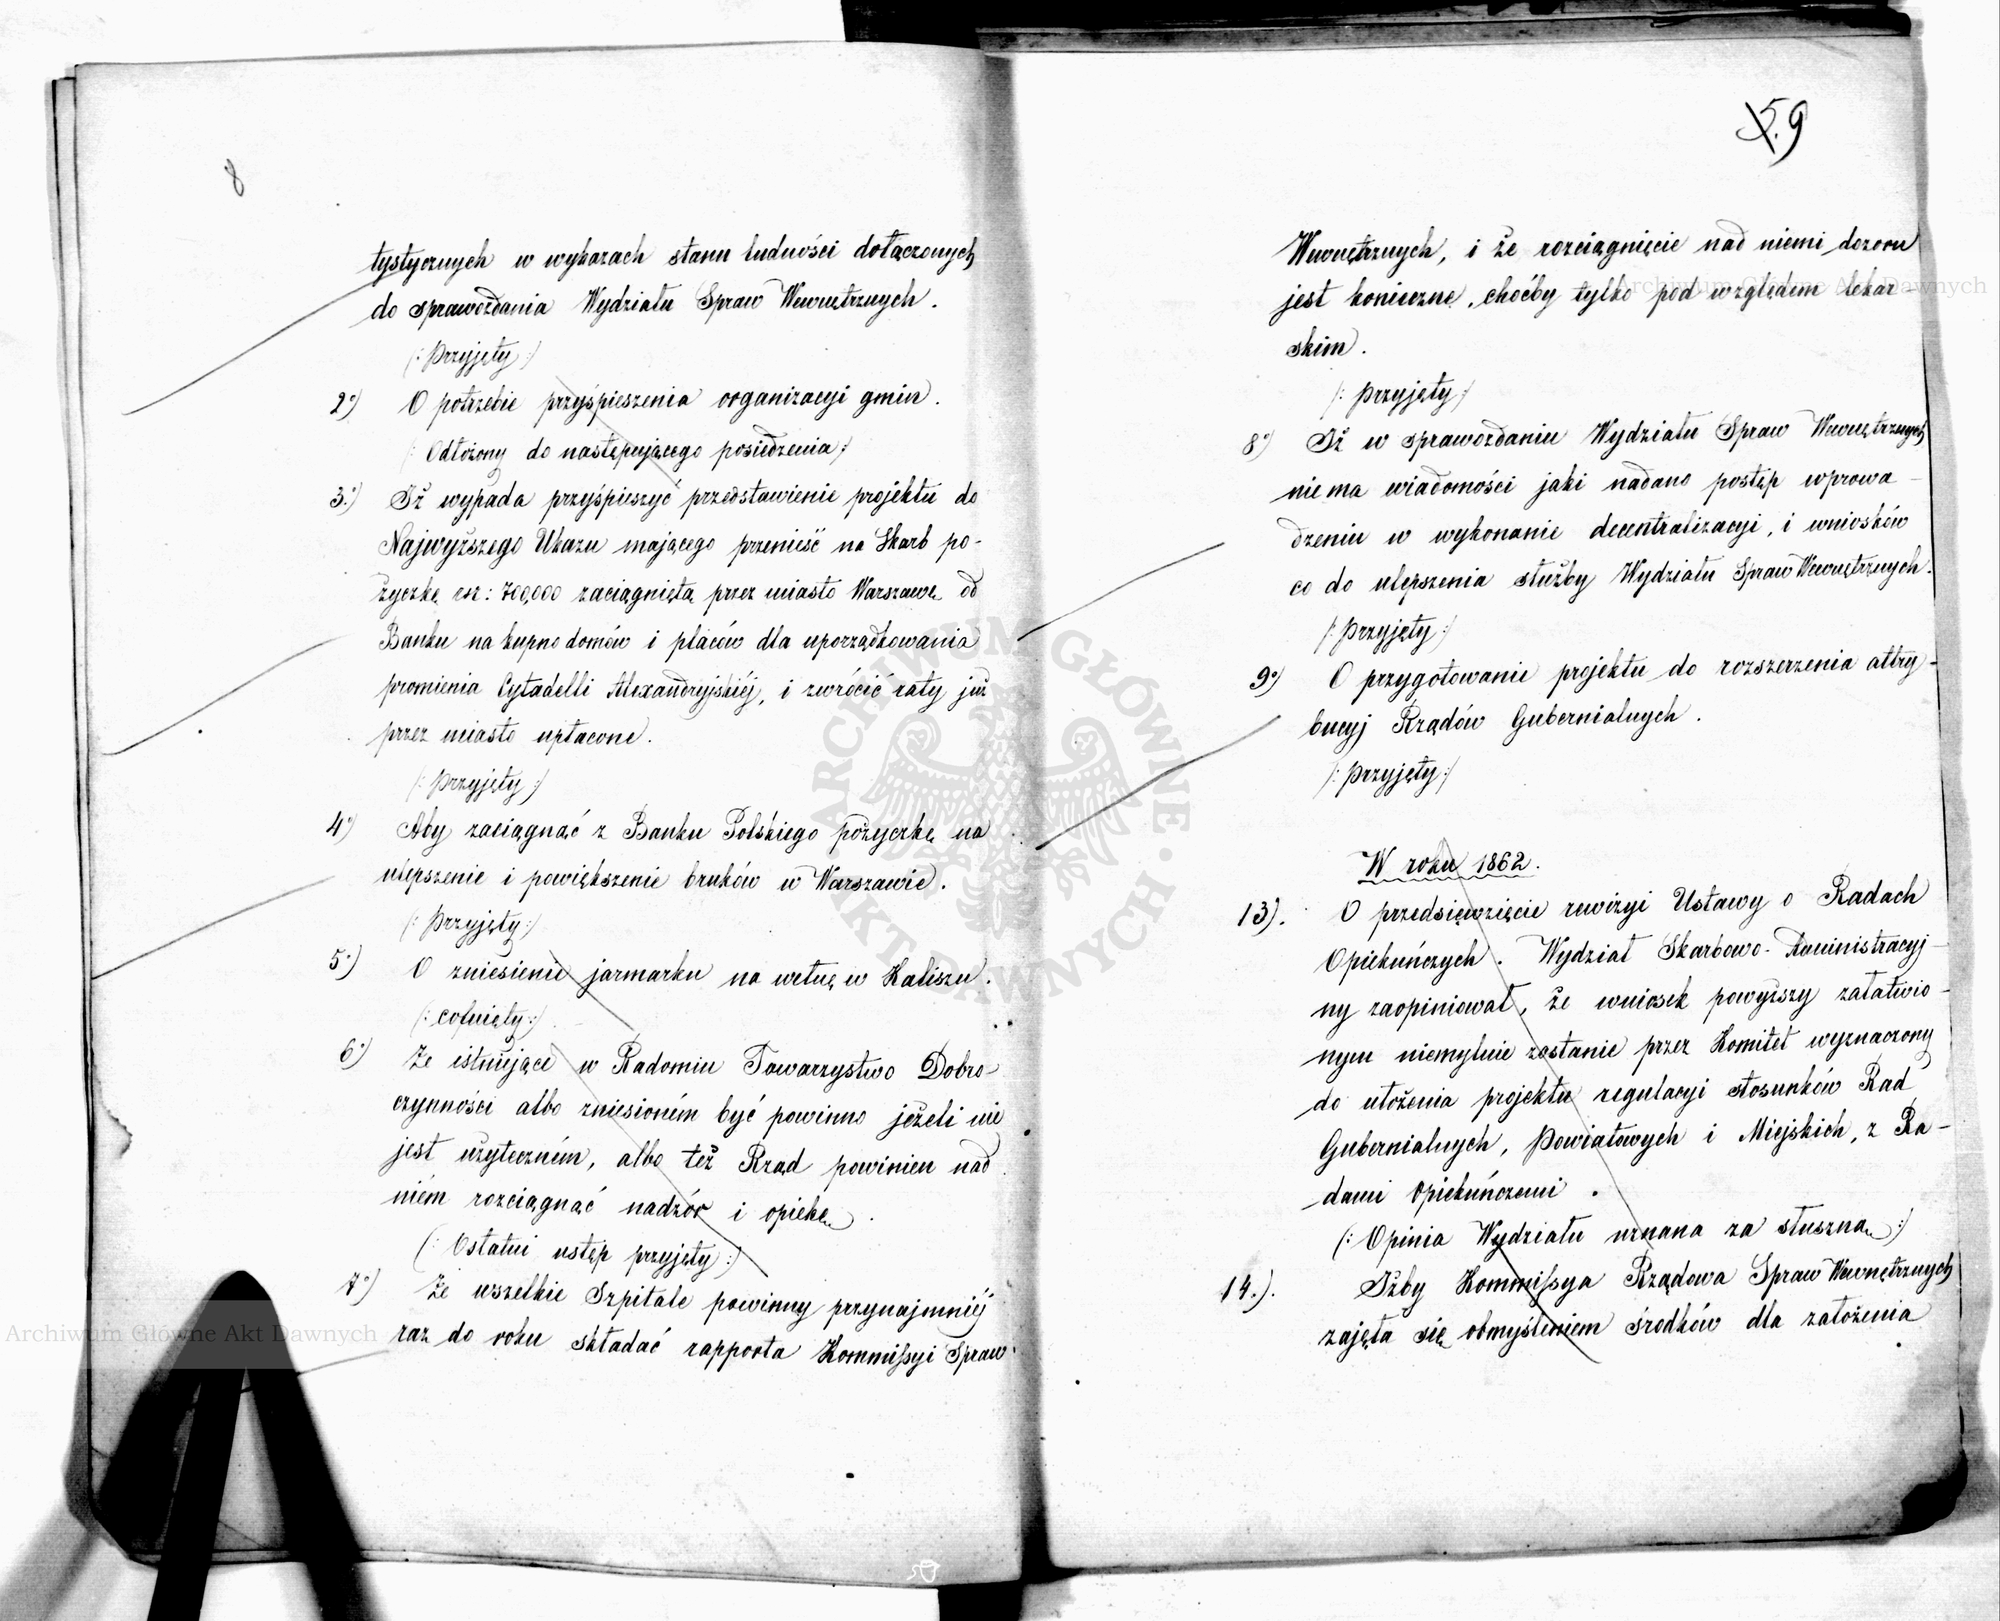 8
tystycznych w wykazach stanu ludności dołączonych
do sprawozdania Wydziału Spraw Wewnętrznych.
(: Przyjęty :)
2o) O potrzebie przyśpieszenia organizacyi gmin.
(: Odłożony do następującego posiedzenia :)
3o.) Iż wypada przyśpieszyć przedstawienie projektu do
Najwyższego Ukazu mającego przenieść na Skarb po-
życzkę rsr: 700,000 zaciągniętą przez miasto Warszawę od
Banku na kupno domów i placów dla uporządkowania
promienia Cytadelli Alexandryjskiéj, i zwrócić raty już
przez miasto upłacone.
(: Przyjęty :)
4o) Aby zaciągnąć z Banku Polskiego pożyczkę na
ulepszenie i powiększenie bruków w Warszawie.
(: Przyjęty :)
5o) O zniesienie jarmarku na wełnę w Kaliszu.
(: cofnięty :)
6o) Że istniejące w Radomiu Towarzystwo Dobro-
czynności albo zniesioném być powinno jeżeli nie
jest użyteczném, albo też Rząd powinien nad
niém rozciągnąć nadzór i opiekę.
(: Ostatni ustęp przyjęty :)
7o) Że wszelkie Szpitale powinny przynajmniéj
raz do roku składać rapporta Kommissyi Spraw
5. 9
Wewnętrznych, i że rozciągnięcie nad niemi dozoru
jest konieczne, choćby tylko pod względem lekar-
skim.
(: Przyjęty :)
8o) Iż w sprawozdaniu Wydziału Spraw Wewnętrznych
nie ma wiadomości jaki nadano postęp wprowa-
dzeniu w wykonanie decentralizacyi, i wniosków
co do ulepszenia służby Wydziału Spraw Wewnętrznych.
(: Przyjęty :)
9o) O przygotowanie projektu do rozszerzenia attry-
bucyj Rządów Gubernialnych.
(: Przyjęty :)
W roku 1862.
13). O przedsięwzięcie rewizyi Ustawy o Radach
Opiekuńczych. Wydział Skarbowo-Administracyj-
ny zaopiniował, że wniosek powyższy załatwio-
nym niemylnie zostanie przez Komitet wyznaczony
do ułożenia projektu regulacyi stosunków Rad
Gubernialnych, Powiatowych i Miejskich, z Ra-
dami Opiekuńczemi.
(: Opinia Wydziału uznana za słuszną :)
14.). Iżby Kommissya Rządowa Spraw Wewnętrznych
zajęła się obmyśleniem środków dla założenia
ARCHIWUM GŁÓWNE AKT DAWNYCH
Archiwum Główne Akt Dawnych
Archiwum Główne Akt Dawnych